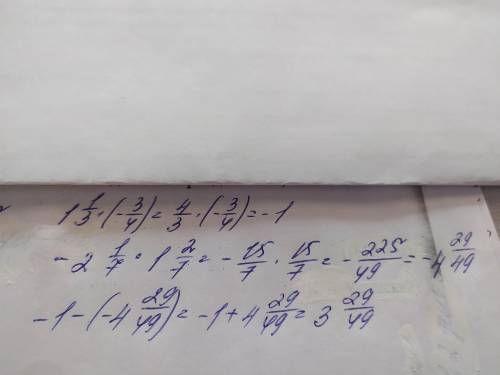 1 1/3 · (-3/4) = 4/3 · (-3/4) = -1
-2 1/7 · 1 2/7 = -15/7 · 15/7 = -225/49 = -4 29/49
-1 - (-4 29/49) = -1 + 4 29/49 = 3 29/49